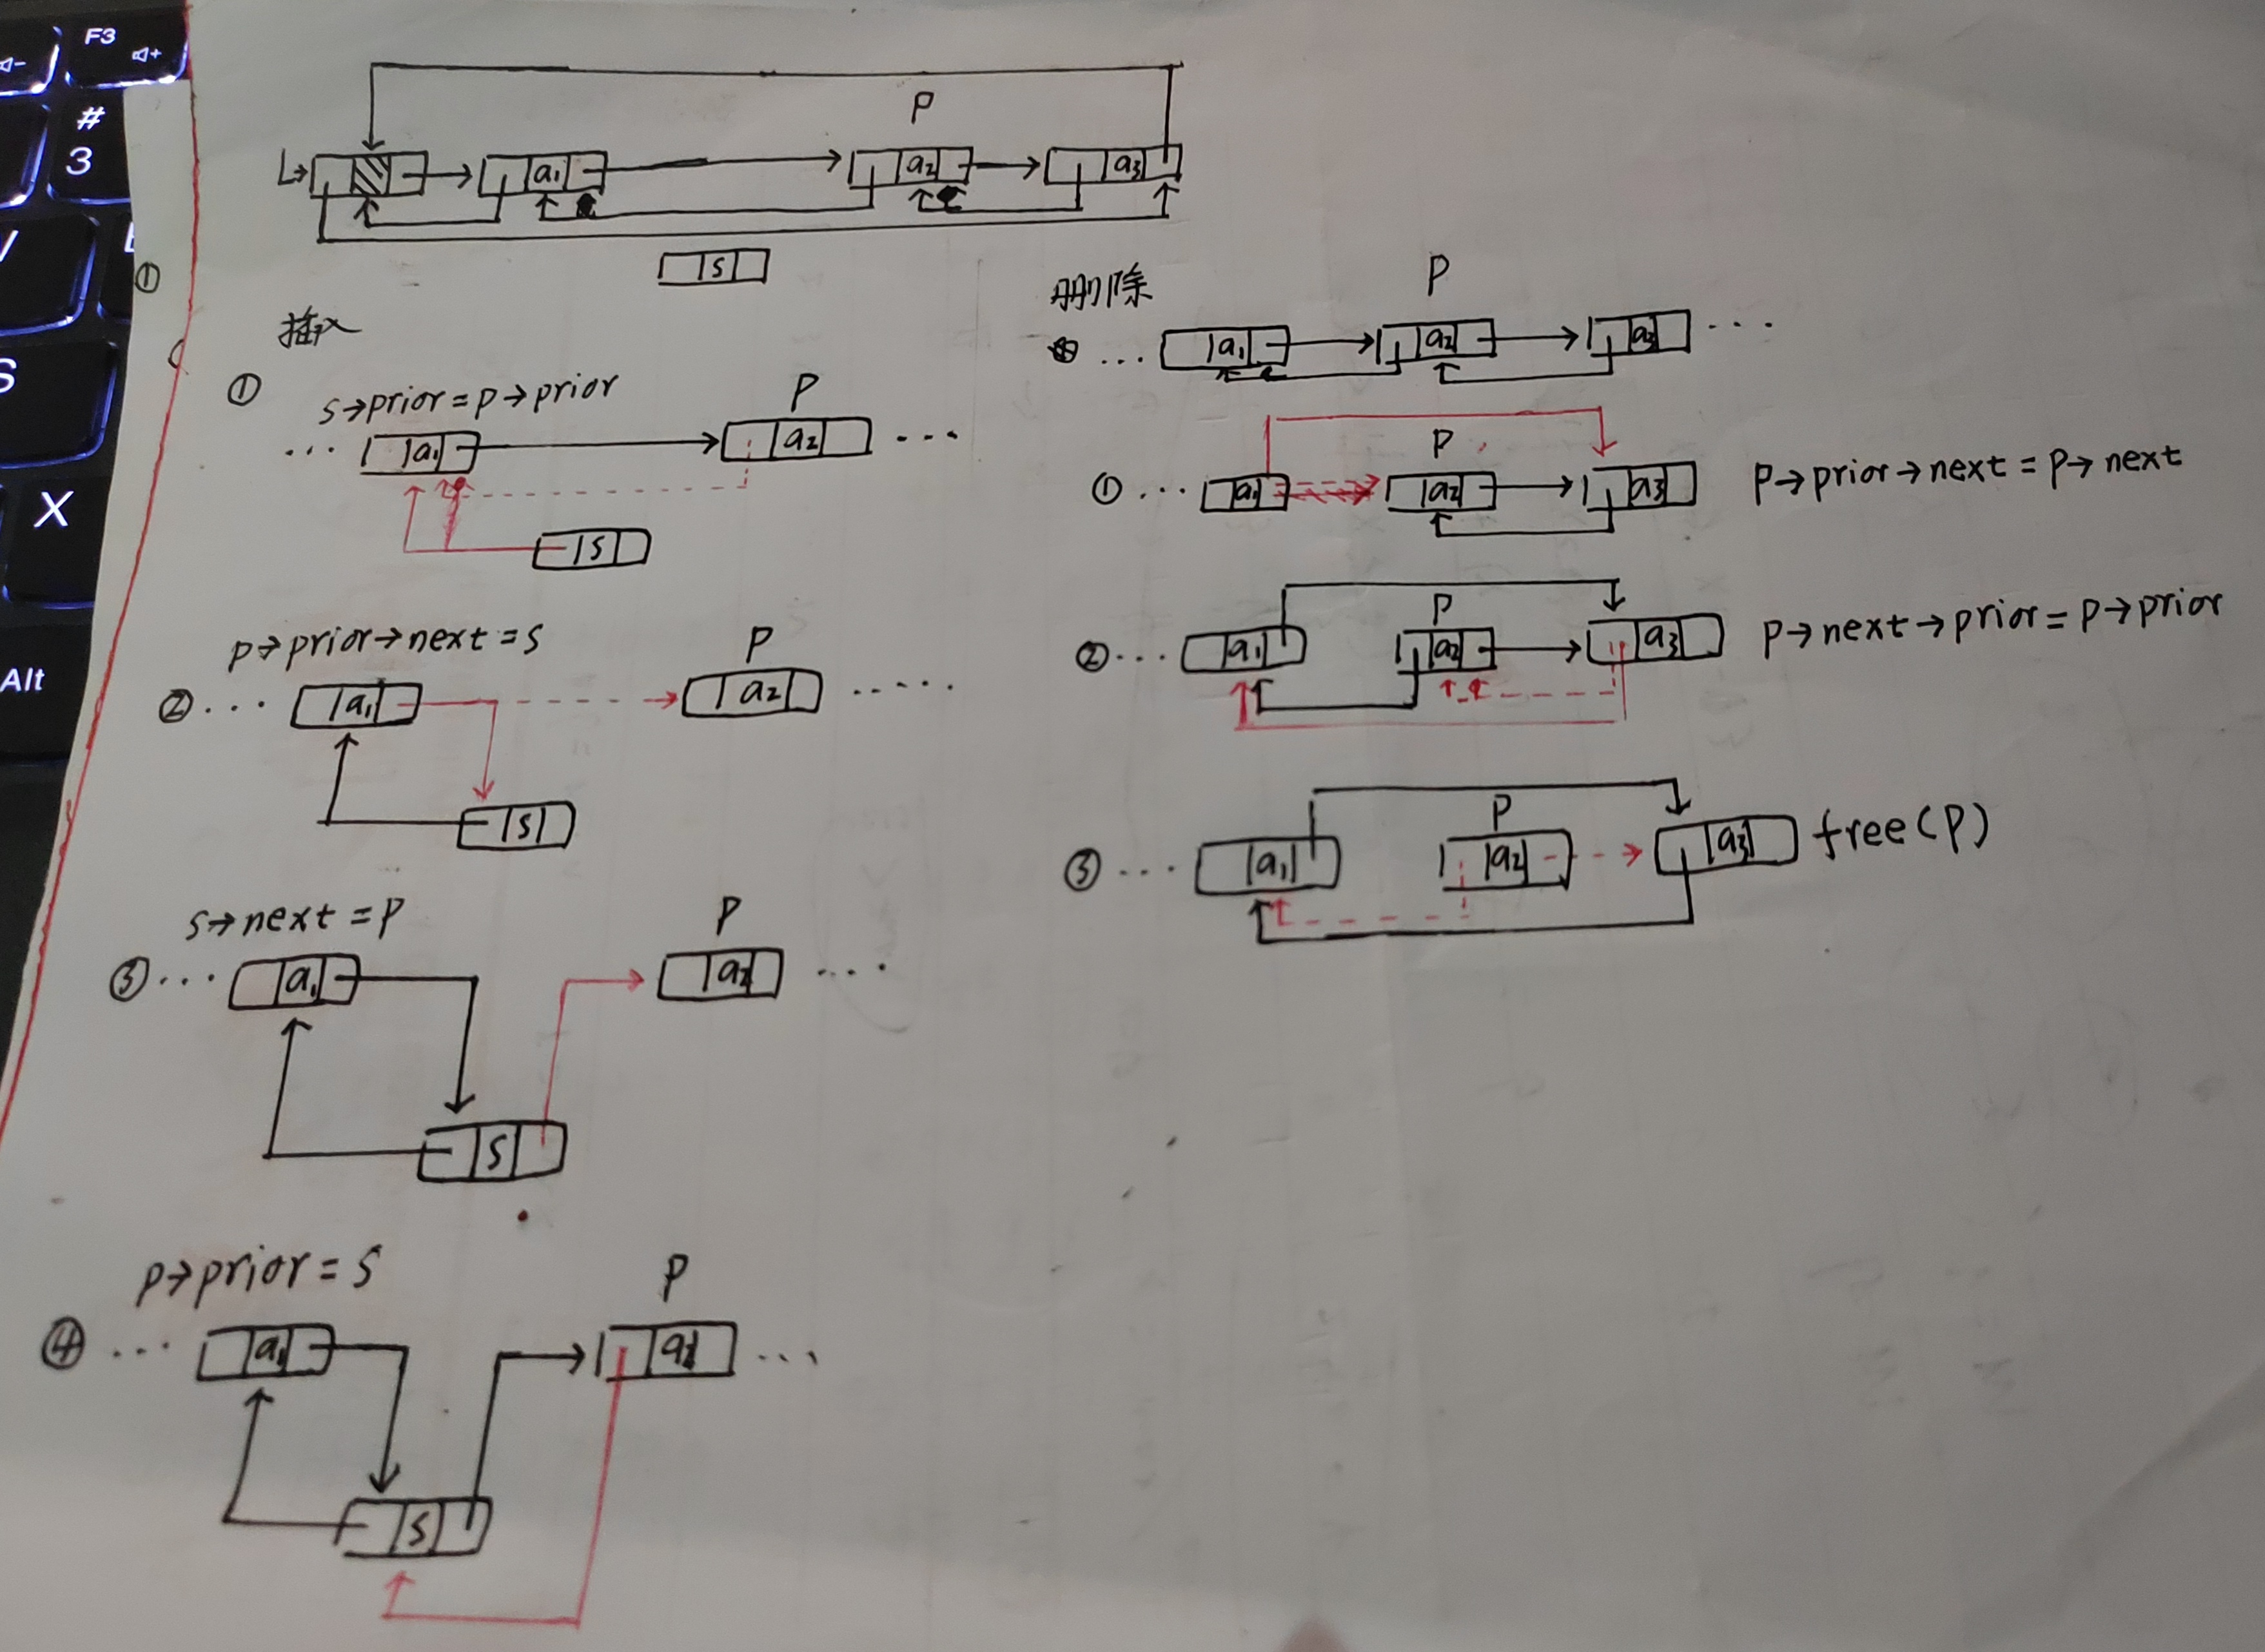 F3
#
3
S
X
Alt
P
L→ a₁ a₂ a₃
S
①
插入
① s→prior=p→prior
P
... a₁ a₂ ...
S
p→prior→next=s
P
②... a₁ a₂ .....
S
s→next=p
P
③... a₁ a₂ ...
S
p→prior=s
P
④... a₁ a₂ ...
S
删除
P
... a₁ a₂ a₃ ...
P
①... a₁ a₂ a₃ p→prior→next=p→next
P
②... a₁ a₂ a₃ p→next→prior=p→prior
P
③... a₁ a₂ a₃ free(p)